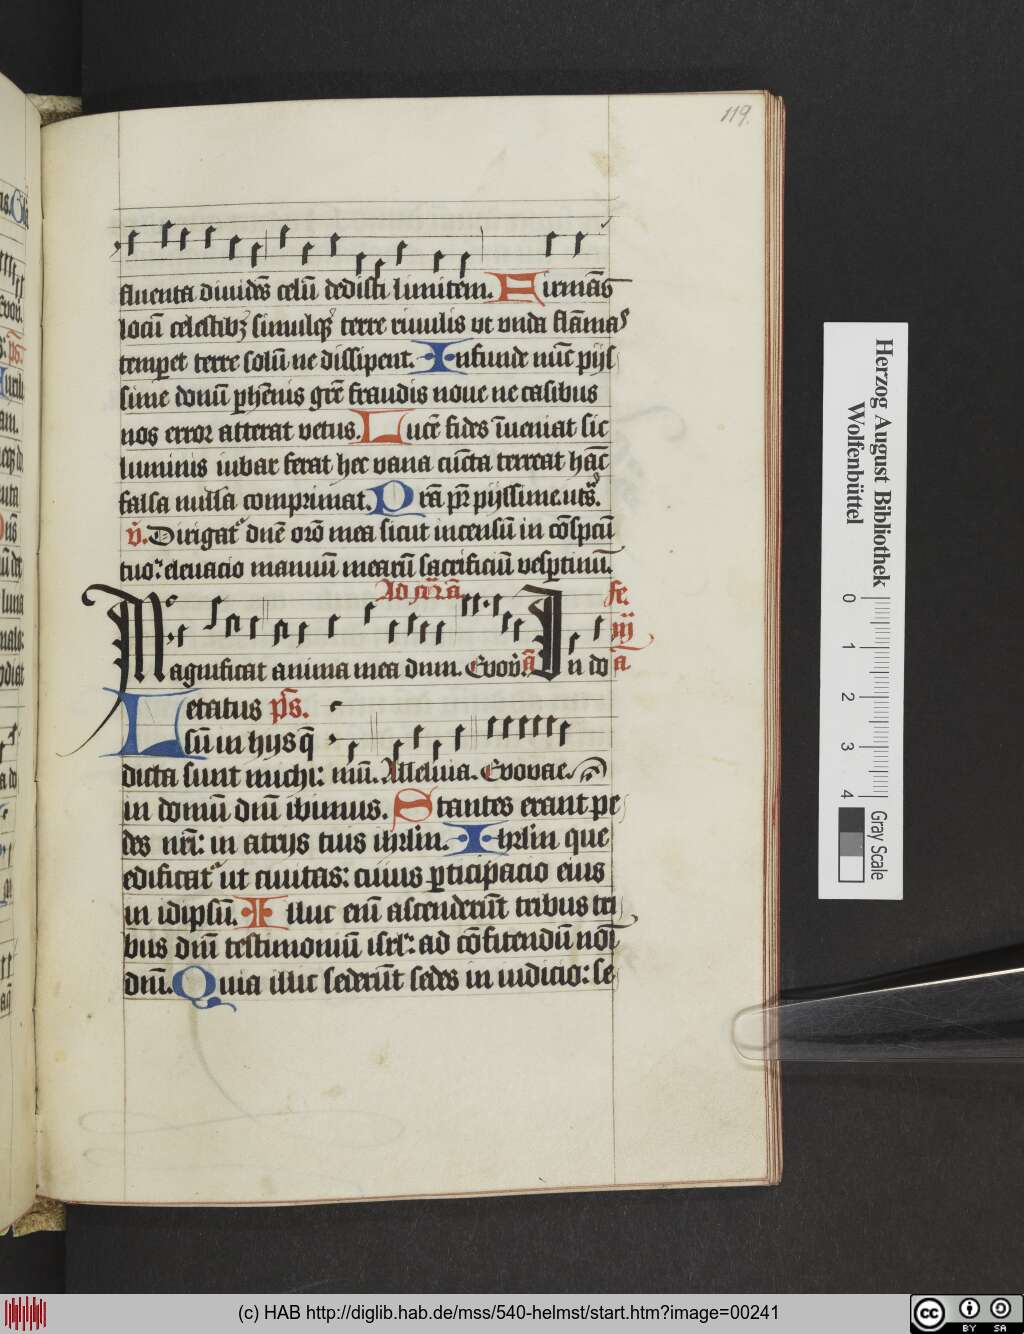 119.
fluenta diuidēs celū dedisti limitem. Firmās
locū celestibꝫ simulqꝫ terre riuulis vt vnda flāmas
temꝑet terre solū ne dissipent. Infunde nūc pijs
sime donū ꝑhēnis grē fraudis noue ne casibus
nos error atterat vetus. Lucē fides īueniat sic
luminis iubar ferat hec vana cūcta terreat hāc
falsa nulla comprimat. P̄rā pr̄ pijssime.
v̄. Dirigat᷑ dn̄e orō mea sicut incensū in cōspcū
tuo: eleuacio manuū mearū sacrificiū vesꝑtinū.
Magnificat anima mea dnm. Evov. a In do
fe.
iij
a
Letatus ps.
sū in hijs q̄
dicta sunt michi: mū. Alleluia. Evovae.
in domū dnī ibimus. Stantes erant pe
des nr̄i: in atrijs tuis ihrlm̄. Ihrlm̄ que
edificat᷑ ut ciuitas: cuius ꝑticipacio eius
in idipsū. Illuc enī ascenderūt tribus tri
bus dnī testimoniū isrl̄: ad cōfitendū noī
dnī. Quia illuc sederūt sedes in iudicio: se
Herzog August Bibliothek
Wolfenbüttel
0 1 2 3 4
Gray Scale
(c) HAB http://diglib.hab.de/mss/540-helmst/start.htm?image=00241
cc BY SA